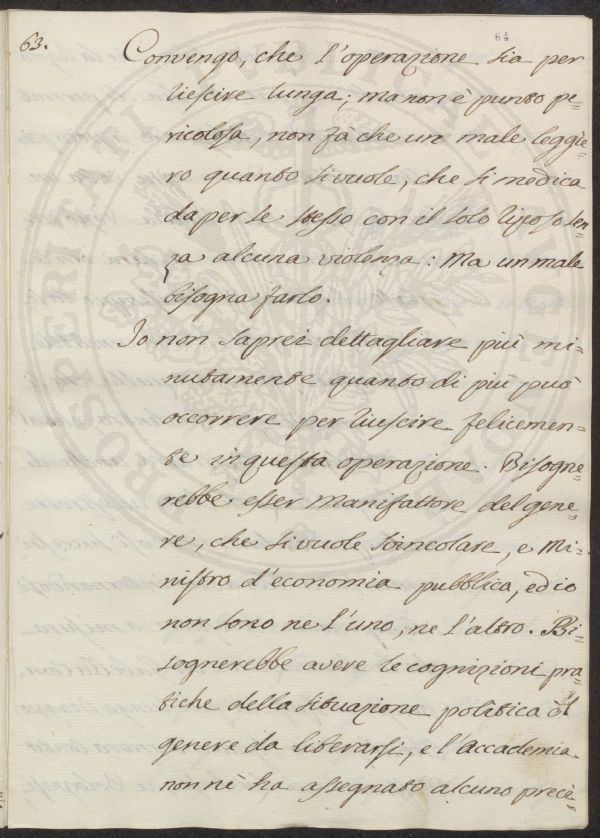 64
63.
Convengo, che l'operazione sia per
riescire lunga; ma non è punto pe=
ricolosa, non fà che un male leggie=
ro quanto si vuole, che si medica
da per se stesso con il solo riposo sen=
za alcuna violenza: Ma un male
bisogna farlo.
Io non saprei dettagliare più mi=
nutamente quanto di più può
occorrere per riuscire felicemen=
te in questa operazione. Bisogne=
rebbe esser Manifattore del gene=
re, che si vuole svincolare, e Mi=
nistro d'economia pubblica, ed io
non sono ne l'uno, ne l'altro. Bi=
sognerebbe avere le cognizioni pra=
tiche della situazione politica del
genere da liberarsi, e l'Accademia
non nè ha assegnato alcuno preci=